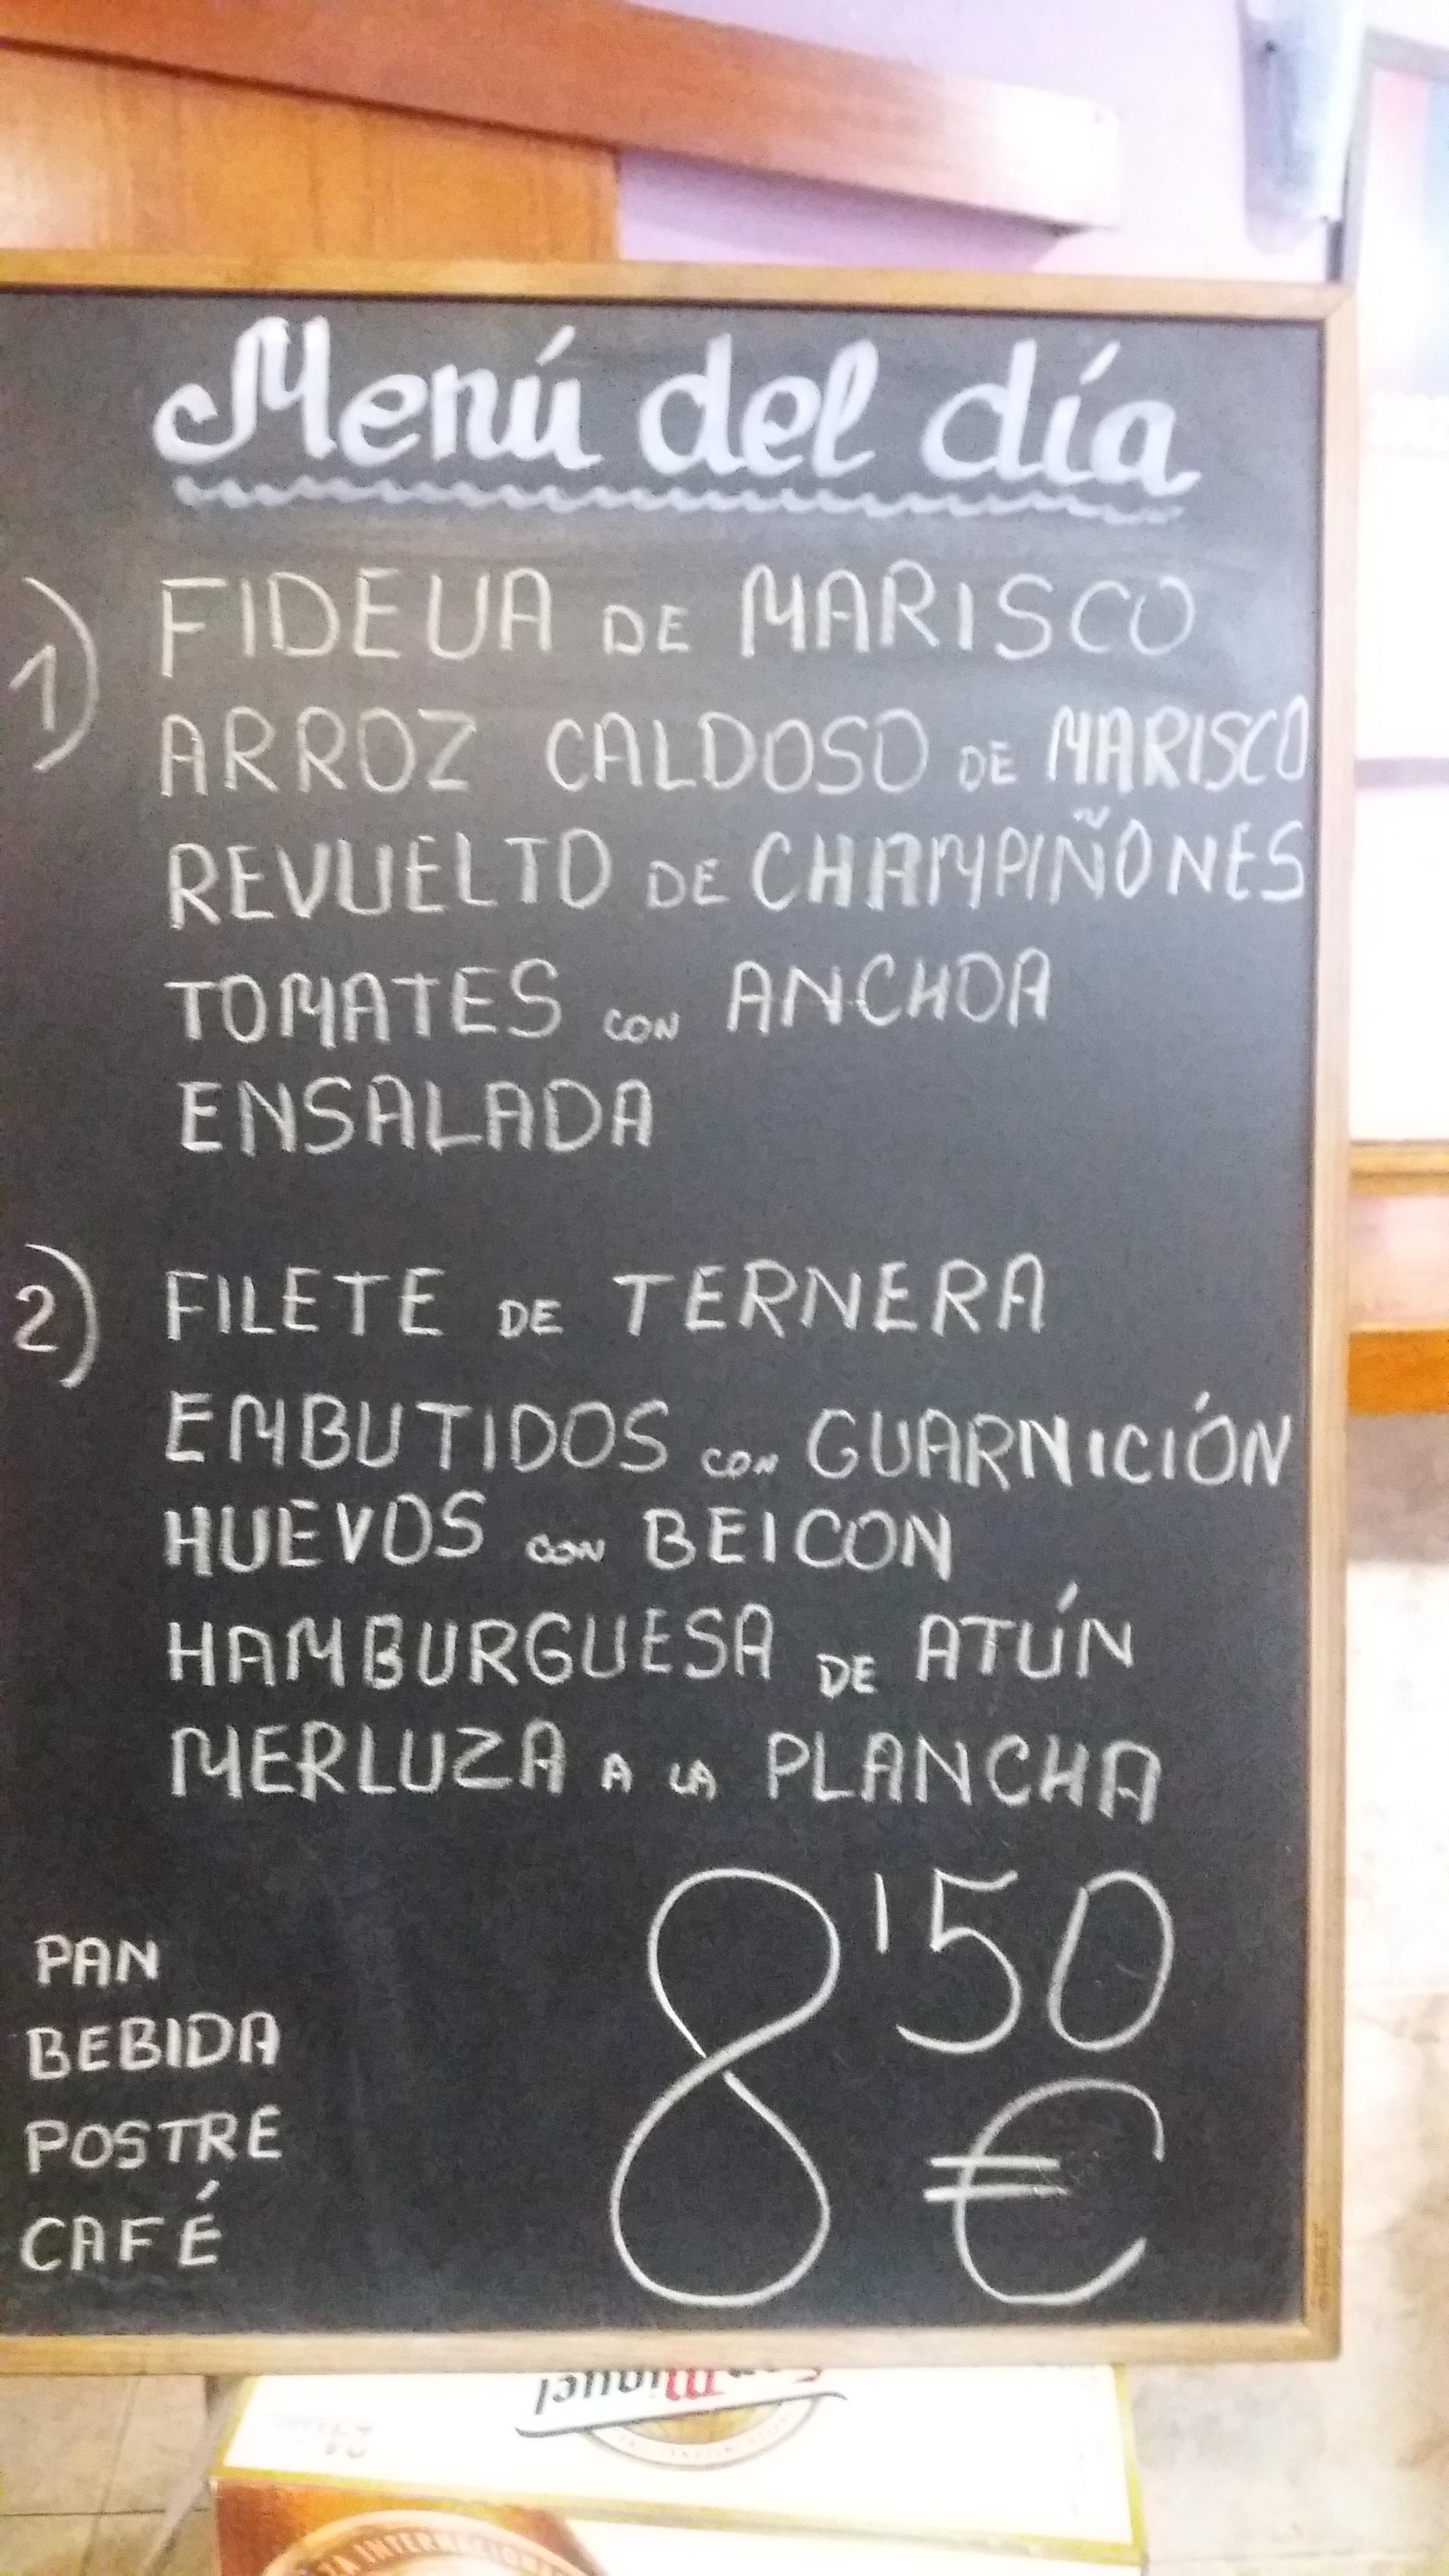 Menú del día
1) FIDEUA DE MARISCO
ARROZ CALDOSO DE MARISCO
REVUELTO DE CHAMPIÑONES
TOMATES CON ANCHOA
ENSALADA
2) FILETE DE TERNERA
EMBUTIDOS CON GUARNICIÓN
HUEVOS CON BEICON
HAMBURGUESA DE ATÚN
MERLUZA A LA PLANCHA
PAN
BEBIDA
POSTRE
CAFÉ
8'50
€
San Miguel
24